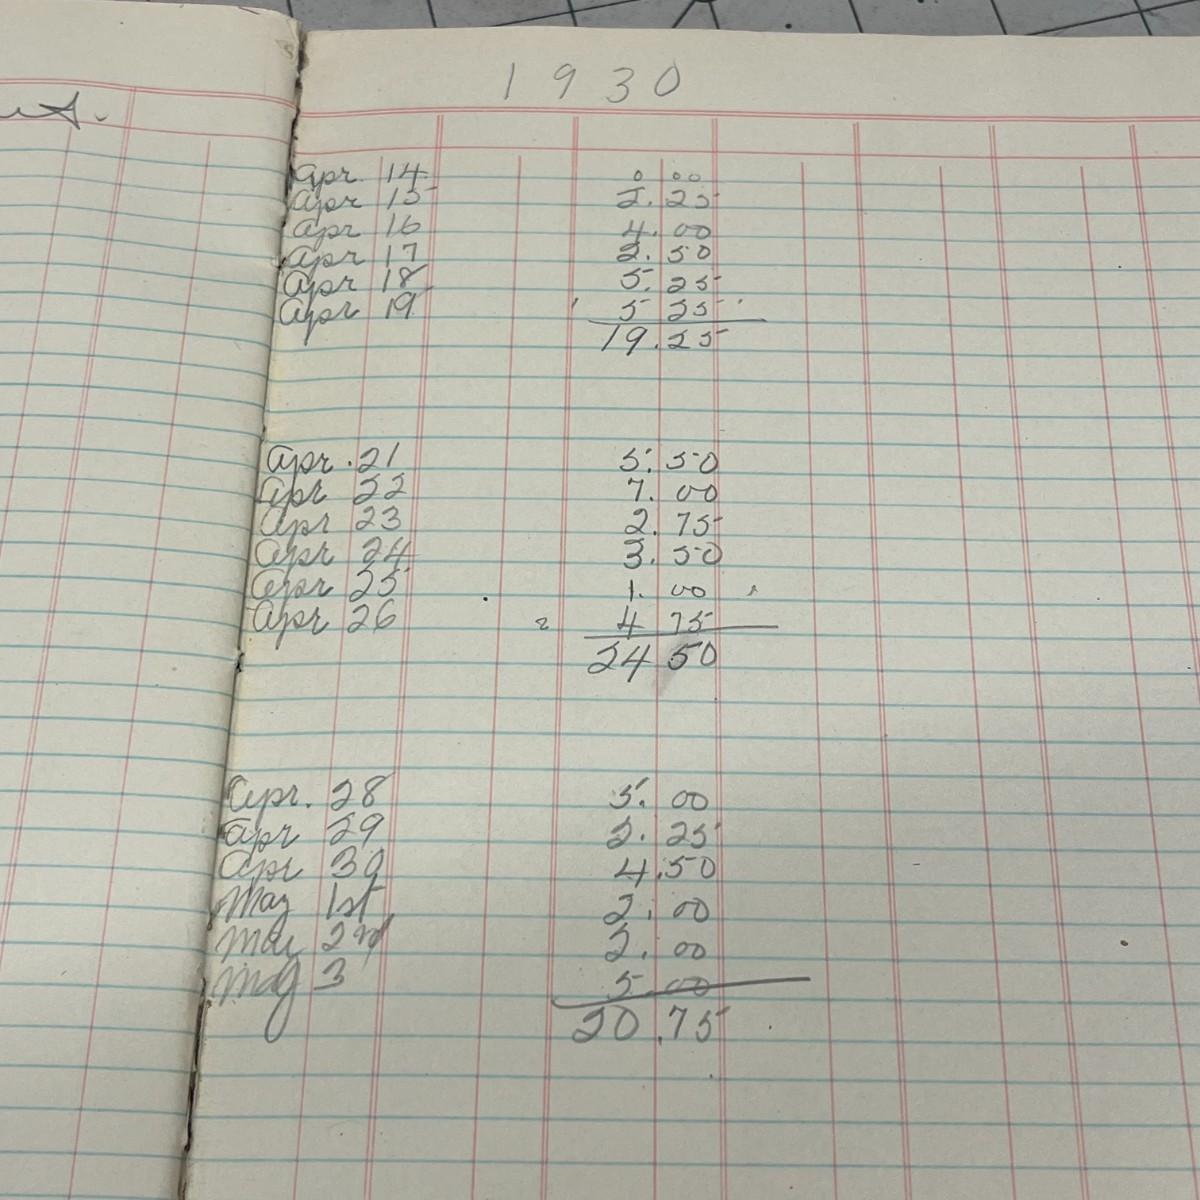 1930
Apr. 14 0 00
Apr 15 2.25
Apr 16 4.00
Apr 17 2.50
Apr 18 5.25
Apr 19 5 25
19.25
Apr. 21 5.50
Apr 22 7.00
Apr 23 2.75
Apr 24 3.50
Apr 25 1.00
Apr 26 2 4 75
24 50
Apr. 28 5.00
Apr 29 2.25
Apr 30 4.50
May 1st 2.00
May 2nd 2.00
May 3 5.00
20.75